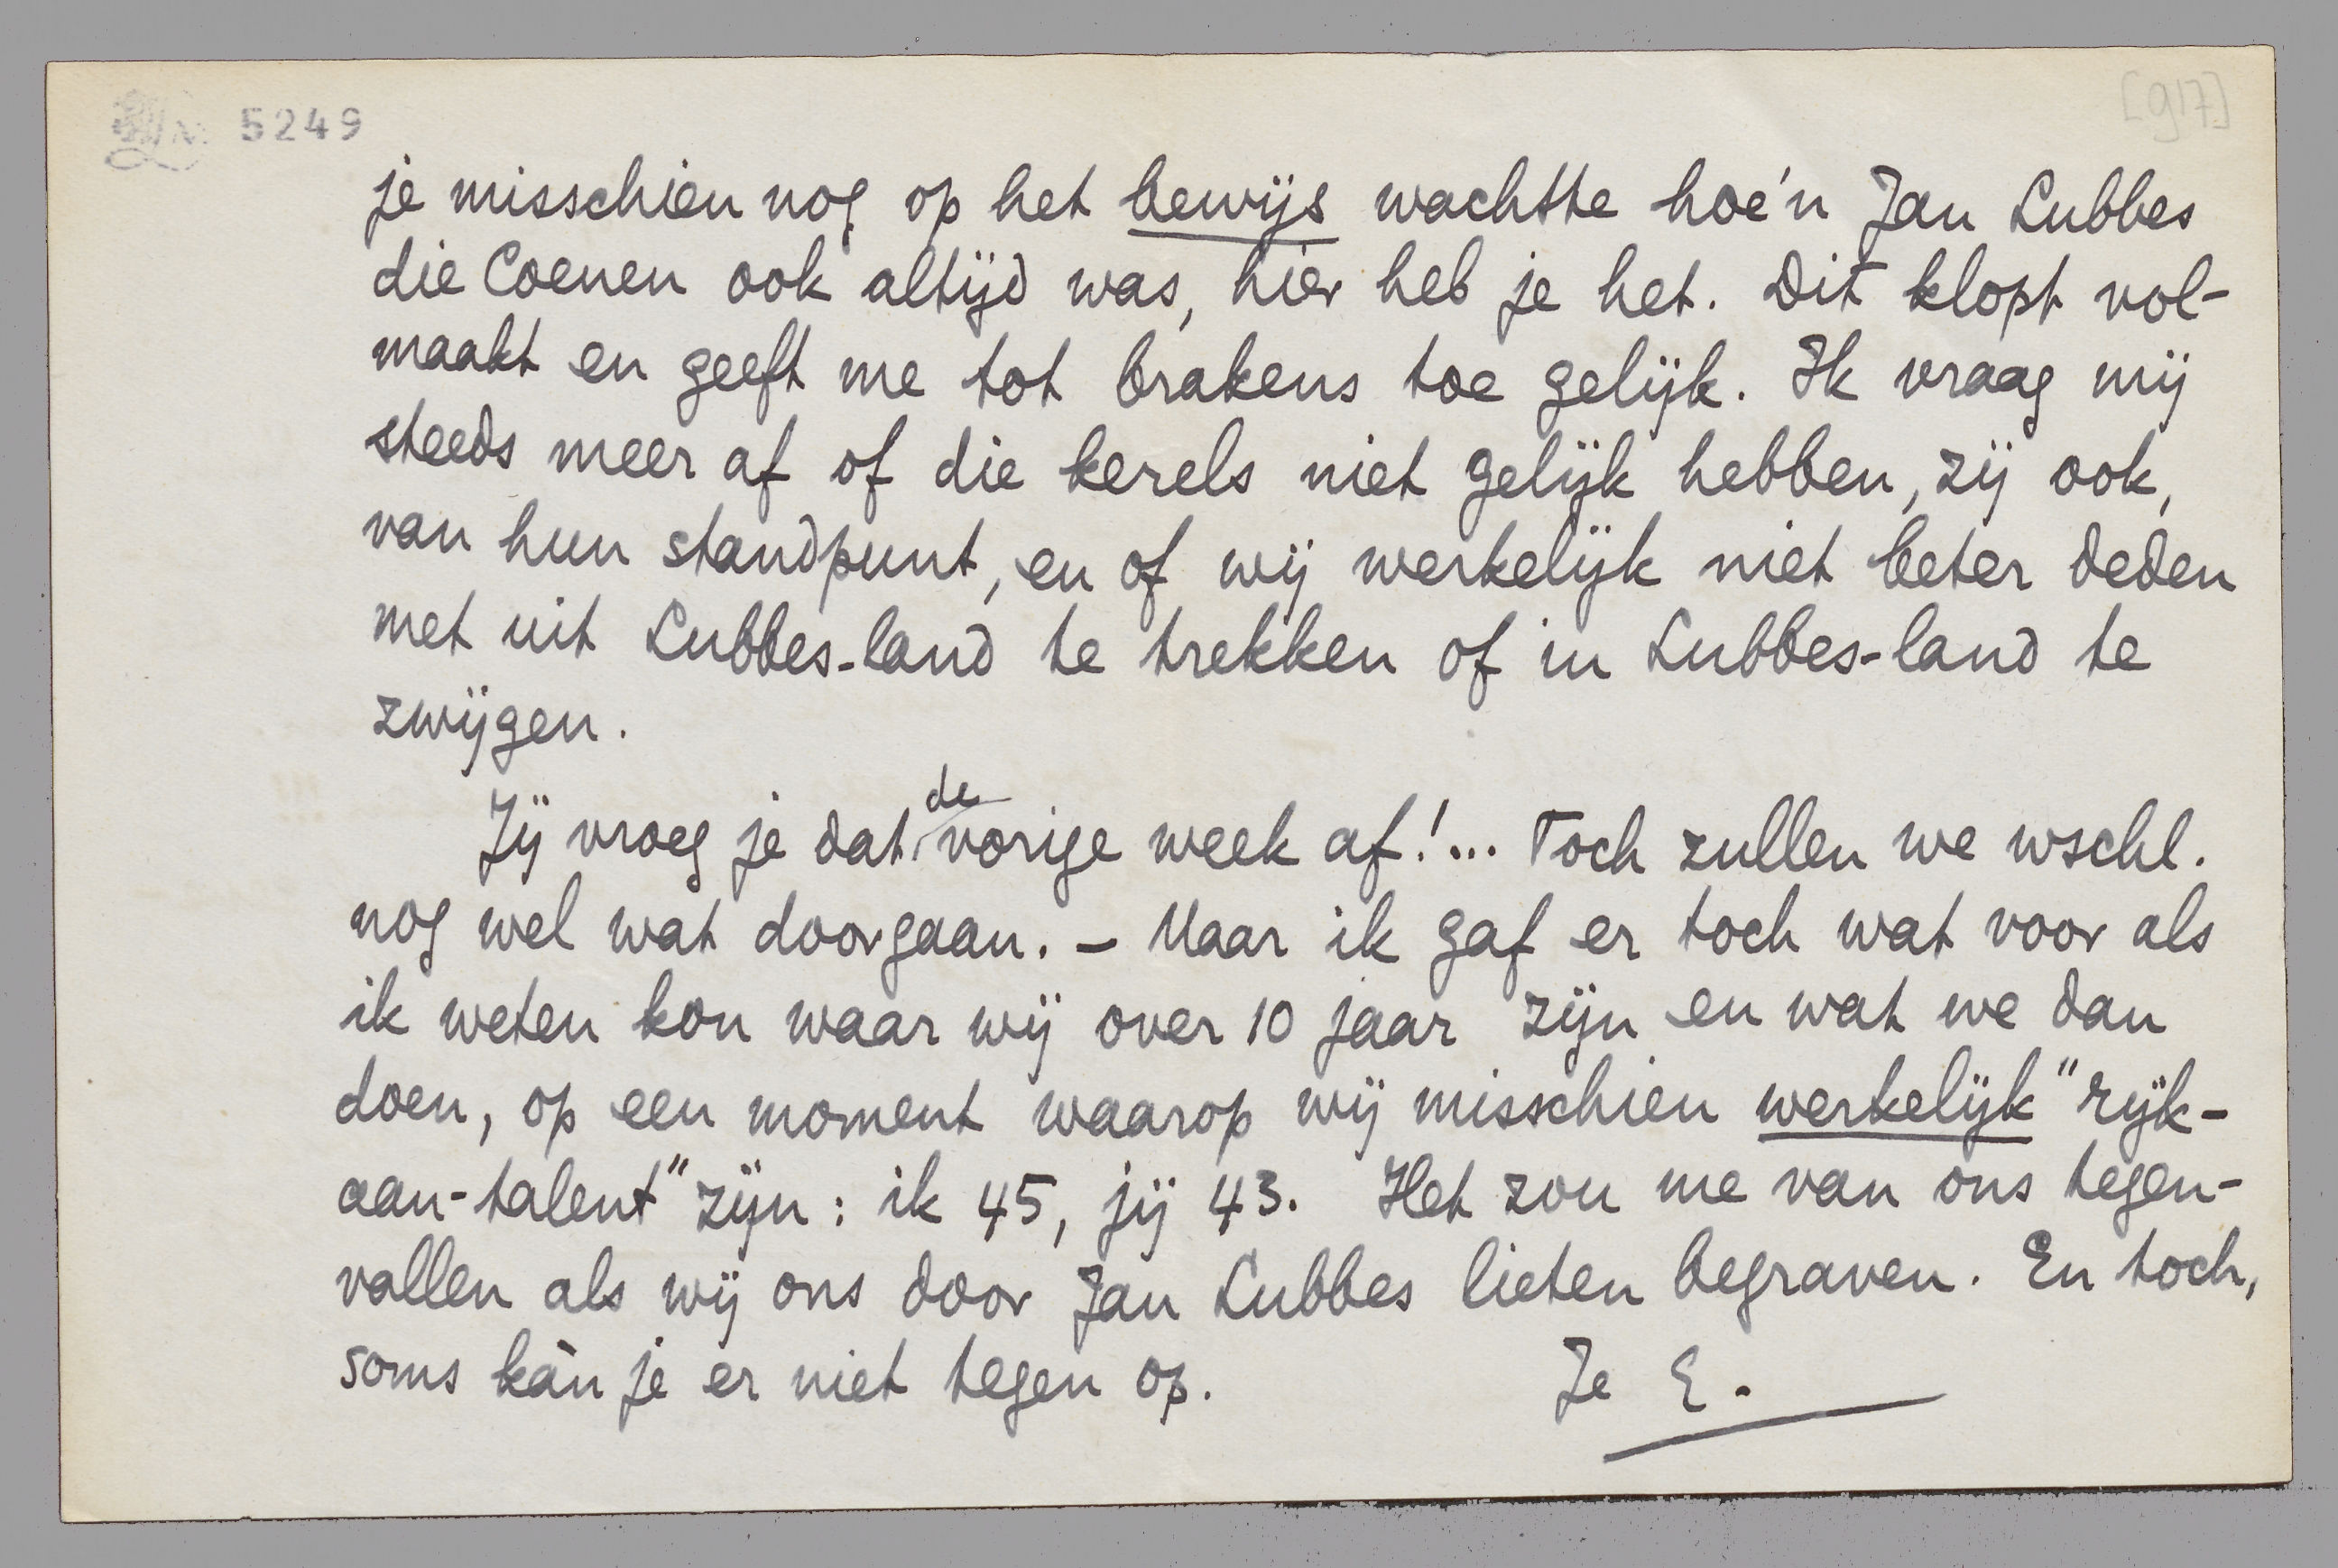 5249
[917]
je misschien nog op het bewijs wachtte hoe'n Jan Lubbes
die Coenen ook altijd was, hier heb je het. Dit klopt vol-
maakt en geeft me tot brakens toe gelijk. Ik vraag mij
steeds meer af of die kerels niet gelijk hebben, zij ook,
van hun standpunt, en of wij werkelijk niet beter deden
met uit Lubbes-land te trekken of in Lubbes-land te
zwijgen.
Jij vroeg je dat de vorige week af!... Toch zullen we wschl.
nog wel wat doorgaan. – Maar ik gaf er toch wat voor als
ik weten kon waar wij over 10 jaar zijn en wat we dan
doen, op een moment waarop wij misschien werkelijk "rijk-
aan-talent" zijn: ik 45, jij 43. Het zou me van ons tegen-
vallen als wij ons door Jan Lubbes lieten begraven. En toch,
soms kàn je er niet tegen op. Je E.